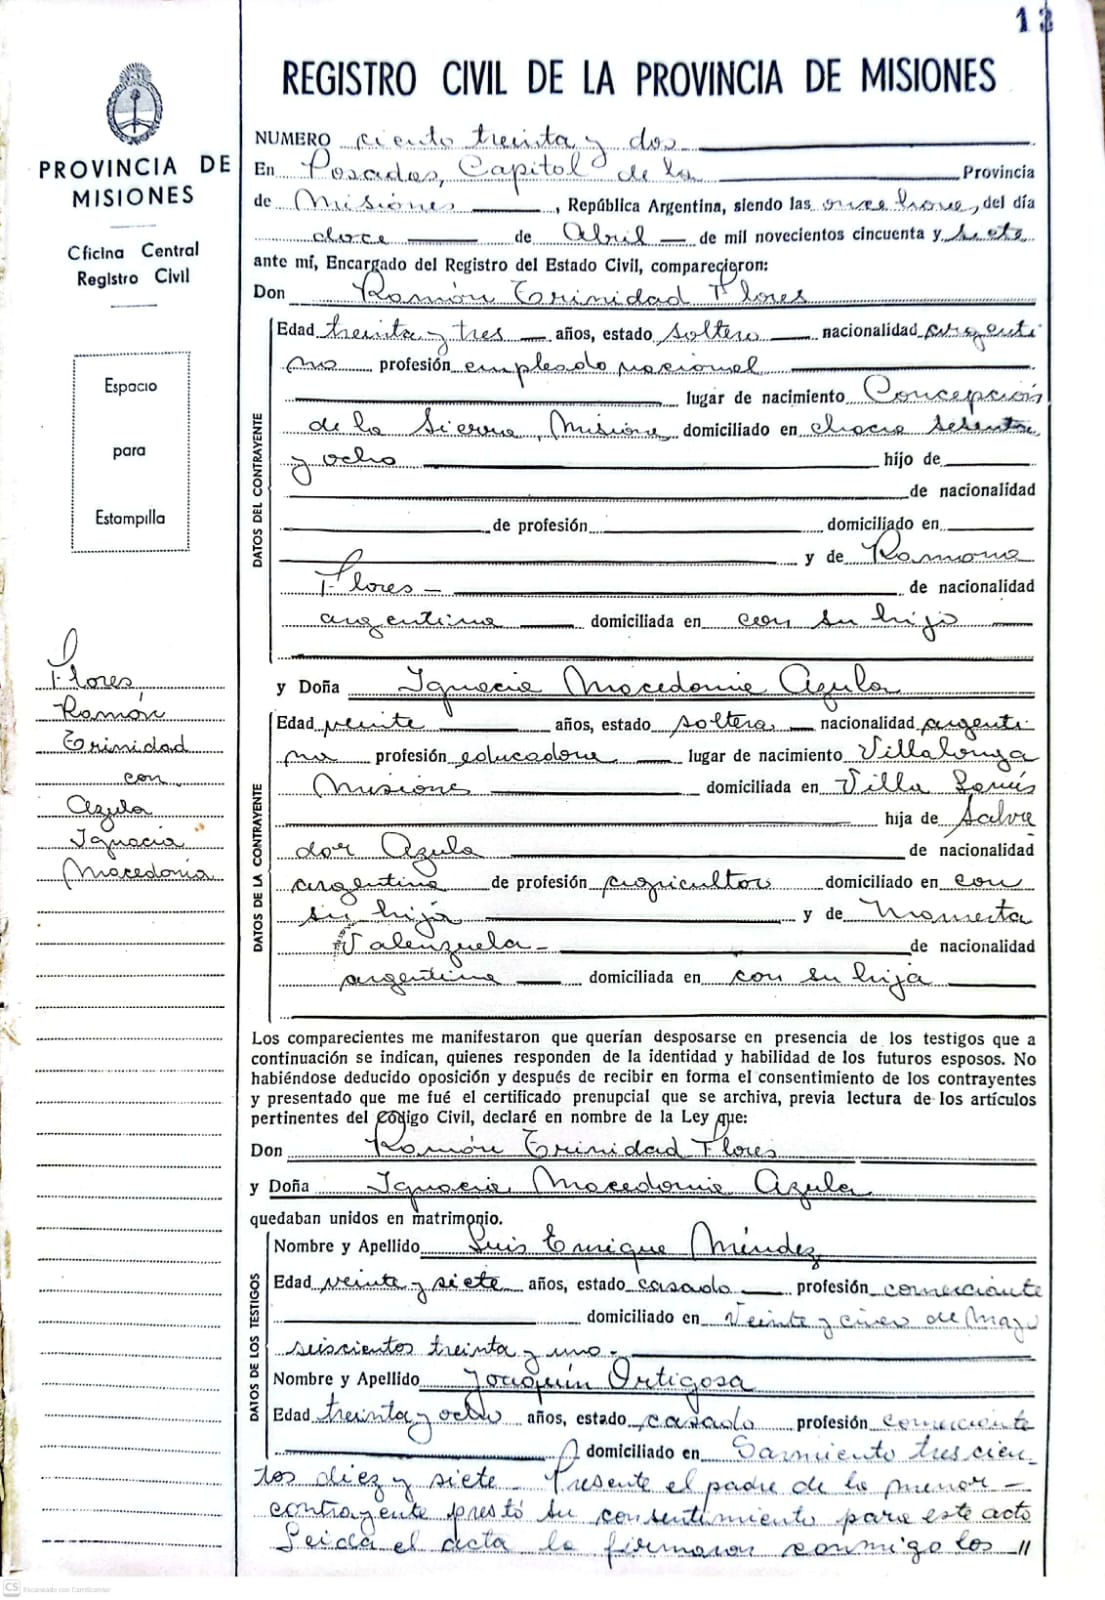 13
REGISTRO CIVIL DE LA PROVINCIA DE MISIONES
PROVINCIA DE
MISIONES
Oficina Central
Registro Civil
Espacio
para
Estampilla
Flores
Ramón
Trinidad
con
Azula
Ignacia
Macedonia
NUMERO ciento treinta y dos
En Posadas, Capital de la Provincia
de Misiones, República Argentina, siendo las once horas, del día
doce de Abril de mil novecientos cincuenta y siete
ante mí, Encargado del Registro del Estado Civil, comparecieron:
Don Ramón Trinidad Flores
DATOS DEL CONTRAYENTE
Edad treinta y tres años, estado soltero nacionalidad argenti
no profesión empleado nacional
lugar de nacimiento Concepción
de la Sierra, Misiones domiciliado en chacra sesenta
y ocho hijo de
de nacionalidad
de profesión domiciliado en
y de Ramona
Flores - de nacionalidad
argentina domiciliada en con su hijo
y Doña Ignacia Macedonia Azula
DATOS DE LA CONTRAYENTE
Edad veinte años, estado soltera nacionalidad argenti
na profesión educadora lugar de nacimiento Villalonga
Misiones domiciliada en Villa
hija de Salva
dor Azula de nacionalidad
argentina de profesión agricultor domiciliado en con
su hija y de
Valenzuela - de nacionalidad
argentina domiciliada en con su hija
Los comparecientes me manifestaron que querían desposarse en presencia de los testigos que a
continuación se indican, quienes responden de la identidad y habilidad de los futuros esposos. No
habiéndose deducido oposición y después de recibir en forma el consentimiento de los contrayentes
y presentado que me fué el certificado prenupcial que se archiva, previa lectura de los artículos
pertinentes del Código Civil, declaré en nombre de la Ley que:
Don Ramón Trinidad Flores
y Doña Ignacia Macedonia Azula
quedaban unidos en matrimonio.
DATOS DE LOS TESTIGOS
Nombre y Apellido Luis Enrique Méndez
Edad veinte y siete años, estado casado profesión comerciante
domiciliado en Veinte y cinco de Mayo
seiscientos treinta y uno -
Nombre y Apellido Joaquín Ortigosa
Edad treinta y ocho años, estado casado profesión comerciante
domiciliado en Sarmiento trescien-
tos diez y siete Presente el padre de la menor -
contrayente prestó su consentimiento para este acto
Leida el acta la firmaron conmigo los //
CS Escaneado con CamScanner